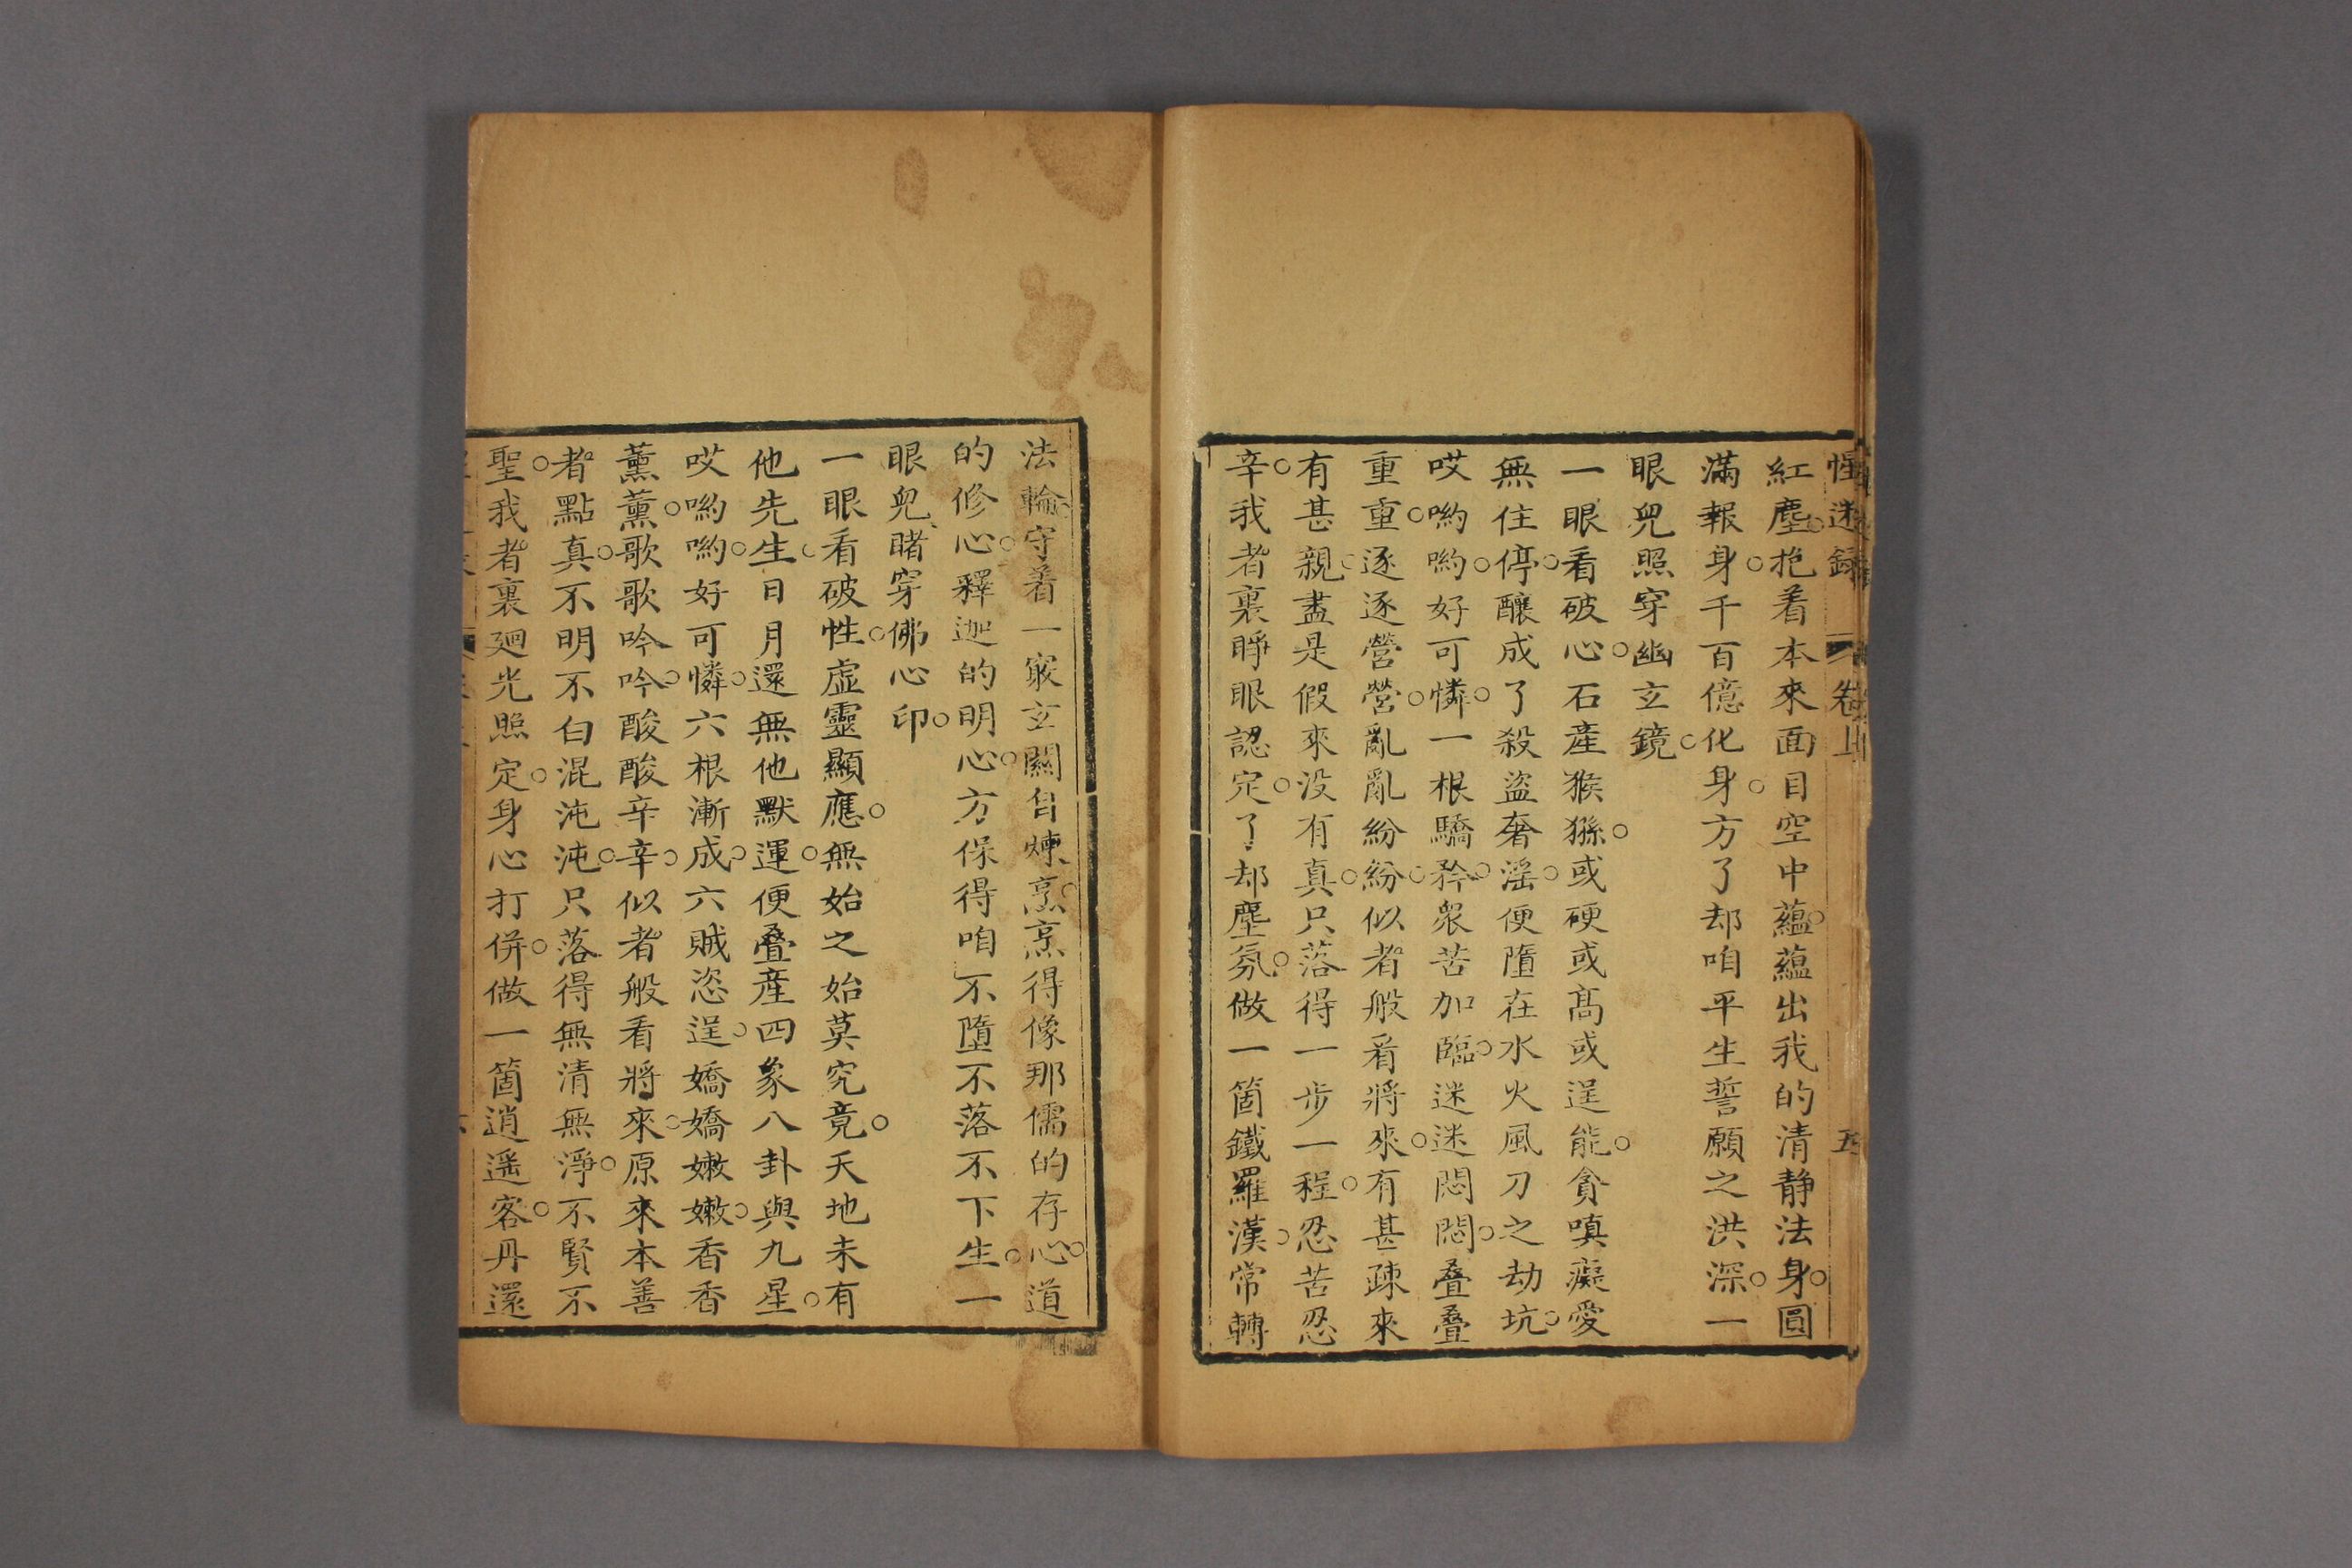 惺迷錄 卷上 五
紅塵。抱着本來面目空中蘊。蘊出我的清静法身。圓
滿報身。千百億化身。方了却咱平生誓願之洪深。一
眼皃照穿。幽玄鏡。
一眼看破心。石產猴猻。或硬或高或逞能。貪嗔癡愛
無住停。釀成了殺盜奢滛。便墮在水火風刀之劫坑。
哎喲喲。好可憐。一根驕矜。衆苦加臨。迷迷悶悶。叠叠
重重。逐逐營營。亂亂紛紛。似者般看將來。有甚疎來
有甚親。盡是假來没有真。只落得一步一程。忍苦忍
辛。我者裏睜眼認定。了却塵氛。做一箇鐵羅漢。常轉
法輪、守着一竅玄關自煉、烹。烹得像那儒的存心。道
的修心。釋迦的明心。方保得咱不墮不落不下生。一
眼皃睹穿佛心印。
一眼看破性。虛靈顯應。無始之始莫究竟。天地未有
他先生。日月還無他默運。便叠產四象八卦與九星。
哎喲喲。好可憐。六根漸成。六賊恣逞。嬌嬌嫩嫩。香香
薰薰。歌歌吟吟。酸酸辛辛。似者般看將來。原來本善
者點真。不明不白混沌沌。只落得無清無淨。不賢不
聖。我者裏廻光照定。身心打併。做一箇逍遥客。丹還